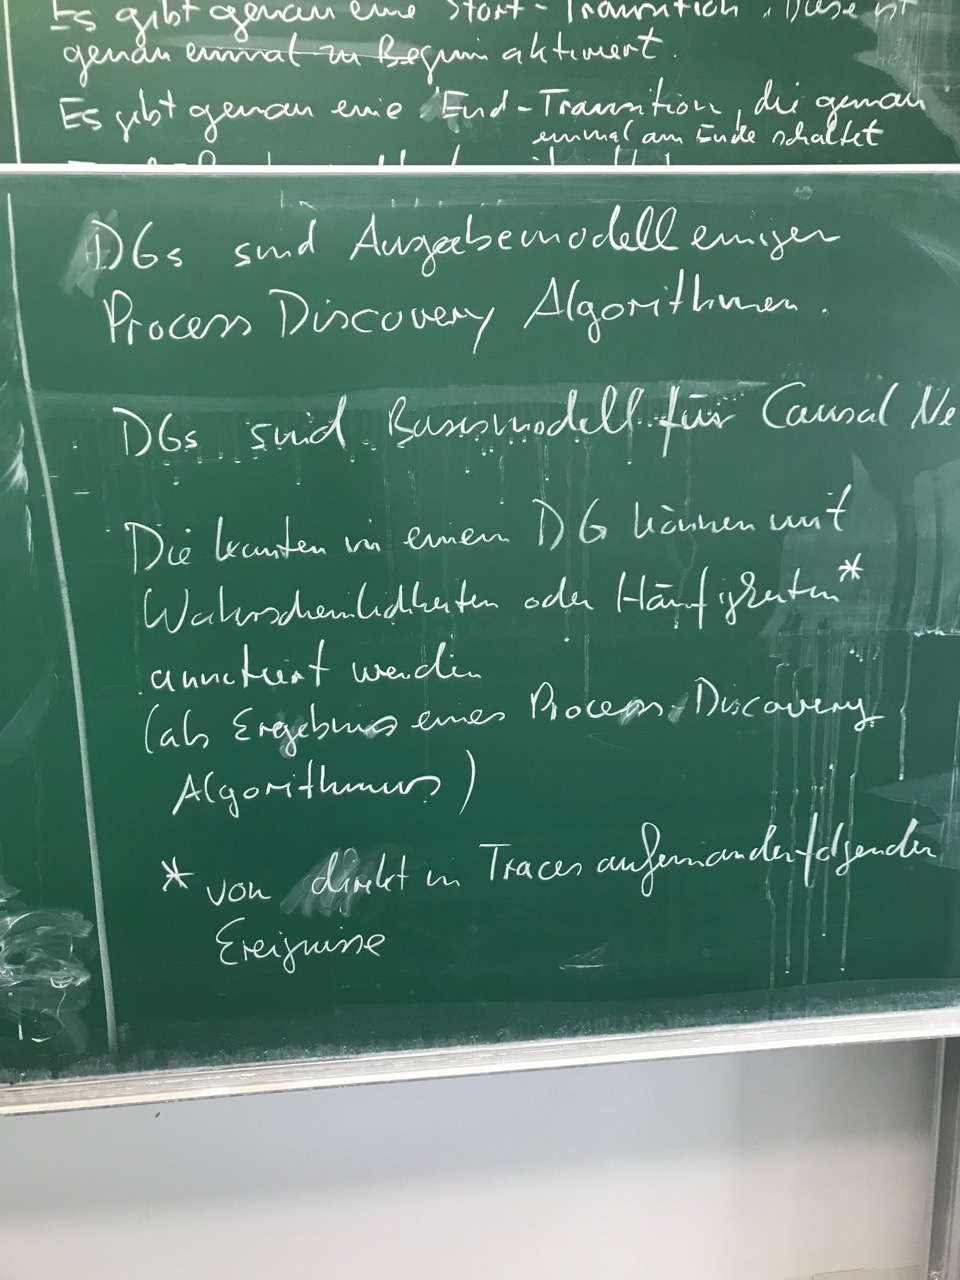 Es gibt genau eine Start-Transition. Diese ist
genau einmal zu Beginn aktiviert.
Es gibt genau eine End-Transition, die genau
einmal am Ende schaltet
DGs sind Ausgabemodell einiger
Process Discovery Algorithmen.
DGs sind Basismodell für Causal Ne
Die Kanten in einem DG können mit
Wahrscheinlichkeiten oder Häufigkeiten*
annotiert werden
(als Ergebnis eines Process-Discovery
Algorithmus)
* von direkt in Traces aufeinanderfolgender
Ereignisse